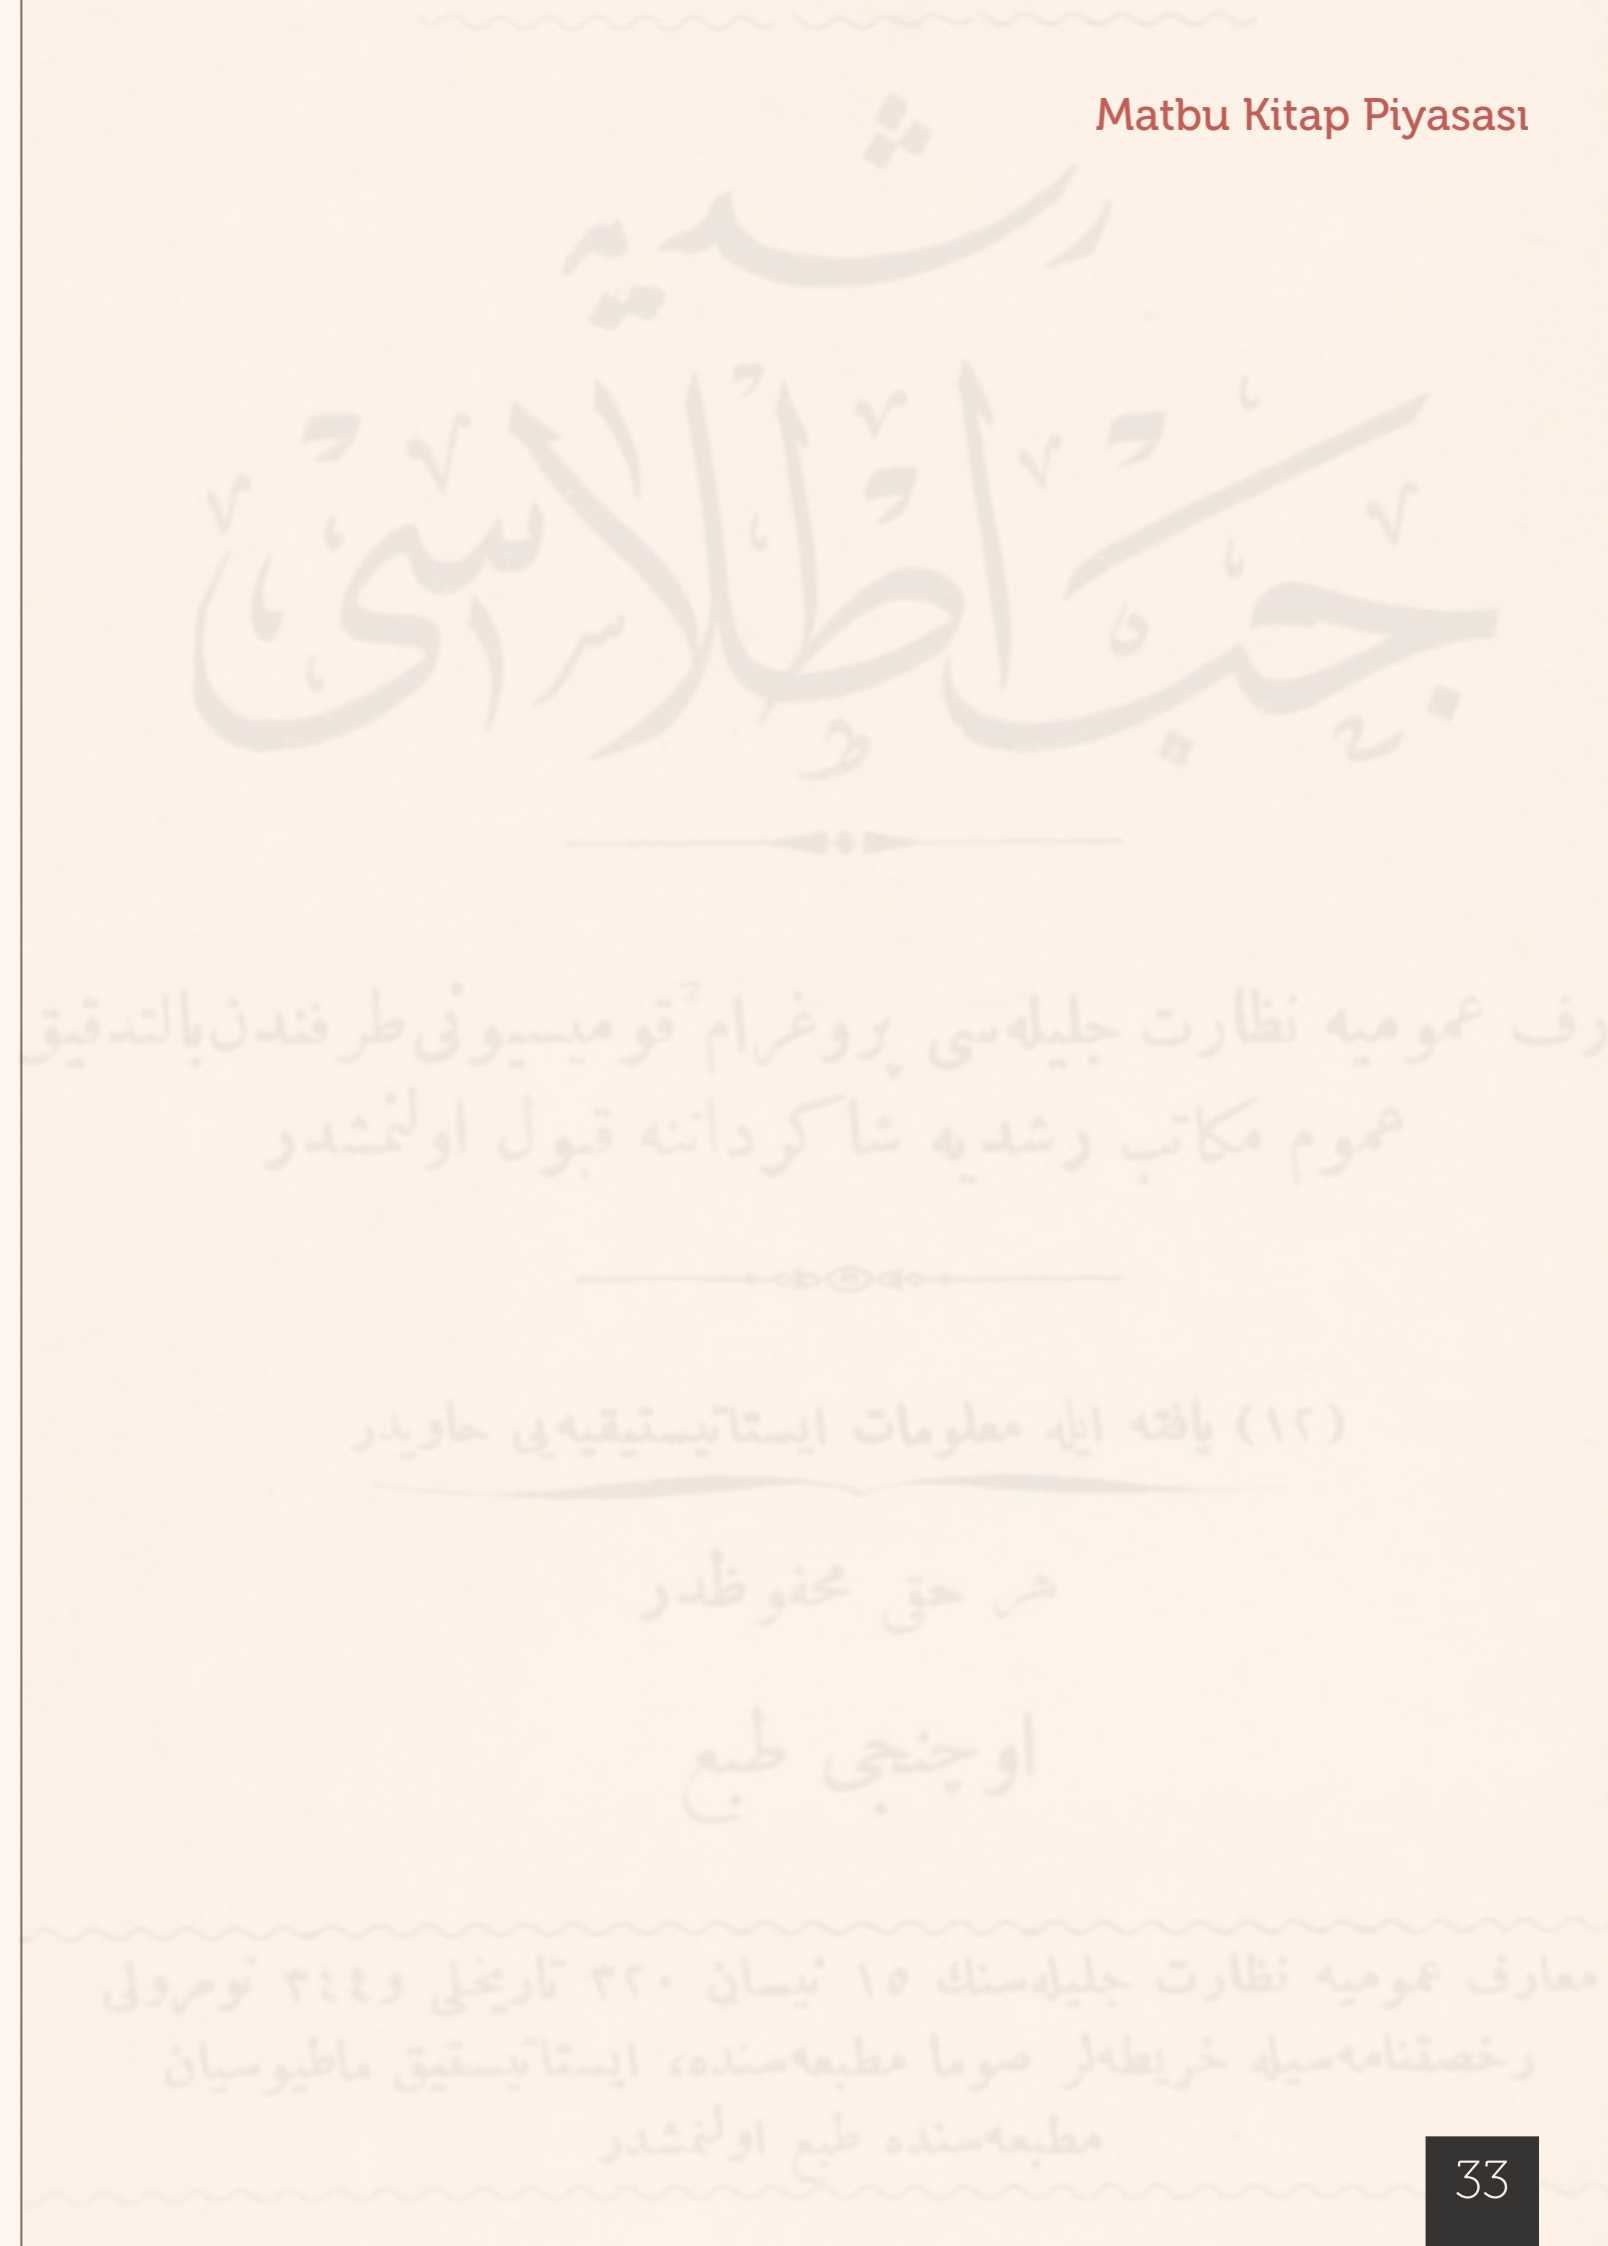 Matbu Kitap Piyasası
رشديه
جَيب اَطْلاسى
رف عموميه نظارت جليله‌سى پروغرام قوميسيونى طرفندن بالتدقيق
عموم مكاتب رشديه شاكرداننه قبول اولنمشدر
(١٢) يافته ايله معلومات ايستاتيستيقيه‌يى حاويدر
هر حقى محفوظدر
اوچنجى طبع
معارف عموميه نظارت جليله‌سنك ١٥ نيسان ٣٢٠ تاريخلى و ٣٤٤ نومرولى
رخصتنامه‌سيله خريطه‌لر صوما مطبعه‌سنده، ايستاتيستيق ماطيوسيان
مطبعه‌سنده طبع اولنمشدر
33